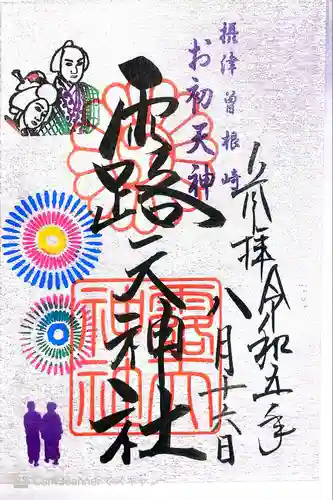 摂津曽根崎
お初天神
奉拝
令和五年
八月十六日
露天神社
露天
神社
CamScanner でスキャン